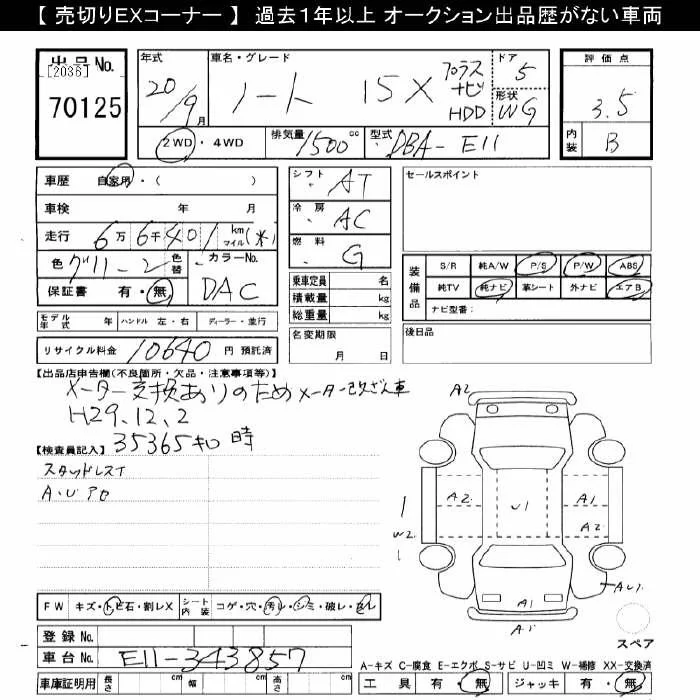 【 売切りEXコーナー 】 過去１年以上 オークション出品歴がない車両
出品No.
[2036]
70125
年式
20/9月
車名・グレード
ノート 15X
プラス
ナビ
HDD
ドア
5
形状
WG
評価点
3.5
内装
B
2WD・4WD
排気量
1500cc
型式
DBA-E11
車歴 自家用・( )
車検 年 月
走行 6万 6千 401 km マイル (※)
色 グリーン 色替
カラーNo.
DAC
保証書 有・無
モデル年式 年 ハンドル 左・右 ディーラー・並行
リサイクル料金 10640 円 預託済
シフト
AT
冷房
AC
燃料
G
乗車定員 名
積載量 kg
総重量 kg
名変期限
月 日
セールスポイント
装備品
S/R 純A/W P/S P/W ABS
純TV 純ナビ 革シート 外ナビ エアB
ナビ型番:
後日品
【出品店申告欄(不良箇所・欠品・注意事項等)】
メーター交換ありのため メーター改ざん車
H29.12.2
35365キロ 時
【検査員記入】
スタッドレスT
A・U アロ
A2
A2
U1
A1
A2
W2
A1
A1
AU1
スペア
FW キズ・トビ石・割レX シート内装 コゲ・穴・汚レ・シミ・破レ・スレ
登録No.
車台No. E11-343857
車庫証明用 長さ cm 幅 cm 高さ cm
A-キズ C-腐食 E-エクボ S-サビ U-凹ミ W-補修 XX-交換済
工具 有・無 ジャッキ 有・無